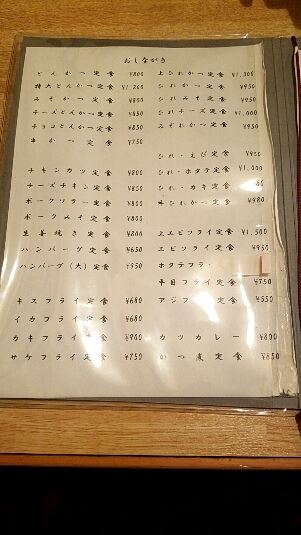 おしながき
とんかつ定食 ¥800
特大とんかつ定食 ¥1,200
みそかつ定食 ¥850
チーズとんかつ定食 ¥850
チョコとんかつ定食 ¥850
串かつ定食 ¥750
チキンカツ定食 ¥800
チーズチキン定食 ¥850
ポークソテー定食 ¥800
ポークスイ定食 ¥800
生姜焼き定食 ¥800
ハンバーグ定食 ¥650
ハンバーグ(大)定食 ¥950
キスフライ定食 ¥680
イカフライ定食 ¥680
カキフライ定食 ¥900
サケフライ定食 ¥750
上ひれかつ定食 ¥1,300
ひれかつ定食 ¥950
ひれみそ定食 ¥950
ひれチーズ定食 ¥1,000
みぞれかつ定食 ¥950
ひれ・えび定食 ¥950
ひれ・ホタテ定食 ¥1,000
ひれ・カキ定食
串ひれかつ定食 ¥980
上エビフライ定食 ¥1,500
エビフライ定食 ¥950
ホタテフライ
平目フライ定食 ¥750
アジフライ定食 ¥550
カツカレー ¥800
かつ煮定食 ¥850